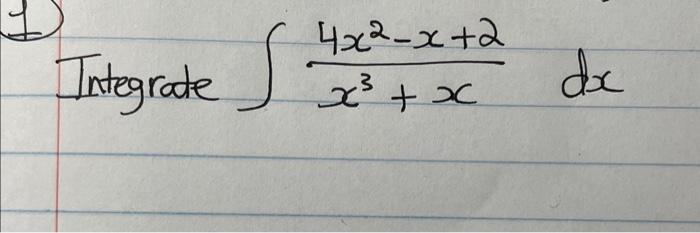 1
Integrate ∫ (4x² - x + 2)/(x³ + x) dx